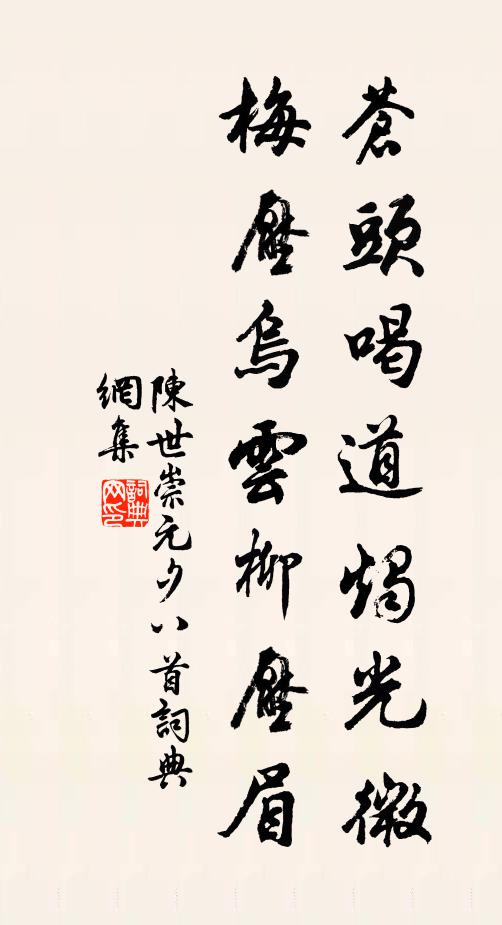 蒼頭喝道燭光微
梅壓烏雲柳壓眉
陳世崇元夕八首詞典
網集
詞典
網印